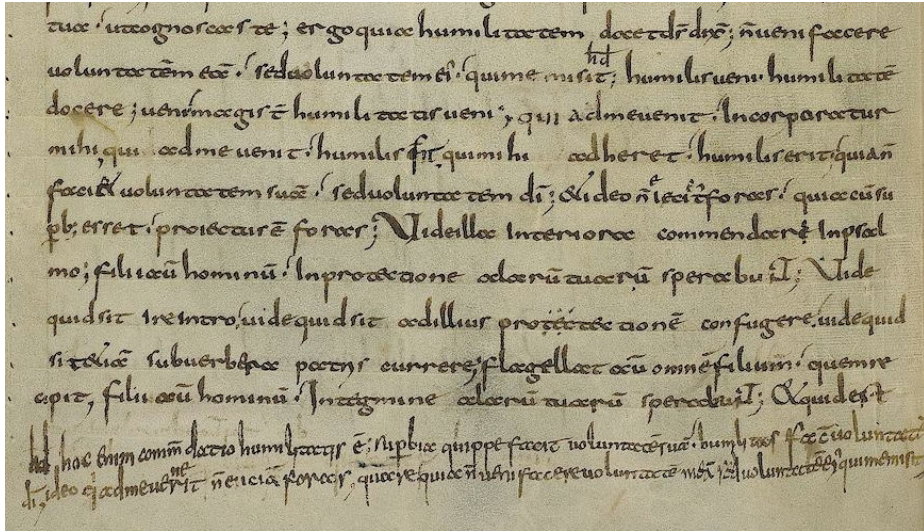 tuæ · ut cognoscas te ; ergo quia humilitatem docet d̄s dix̄ ; n̄ veni facere
voluntatē meā · sed voluntatem ei᷒ · qui me misit ; hd humilis veni · humilitatē
docere ; veni magis t̄ humilitatis veni , qui ad me venit · Incorporatur
mihi , qui ad me venit · humilis fit , qui mihi adheret · humilis erit · quia n̄
facit voluntatem suā · sed voluntatem dī ; & ideo n̄ foras · quia cū su
ꝑb; esset · proiectus ē foras ; Vide illa Interiora commendare In psal
mo ; filii aū hominū · In protectione alarū tuarū sperabu ; Vide
quid sit ire intro , vide quid sit ad illius protectionē confugere , vide quid
sit etiā sub verbera patris currere ; flagellat aū omnē filium · quem re
cipit , filii aū hominū · In tegmine alarū tuarū ; & quid est
hd , hæc enim commdatio humilitatis ē ; suꝑbia quippe facit voluntatē suā · humilitas facit voluntatē
dī , ideo qi ad me venerit n̄ eiciā foras , quare quia n̄ veni facere voluntatē meā sed voluntatē ei᷒ qui me misit ,